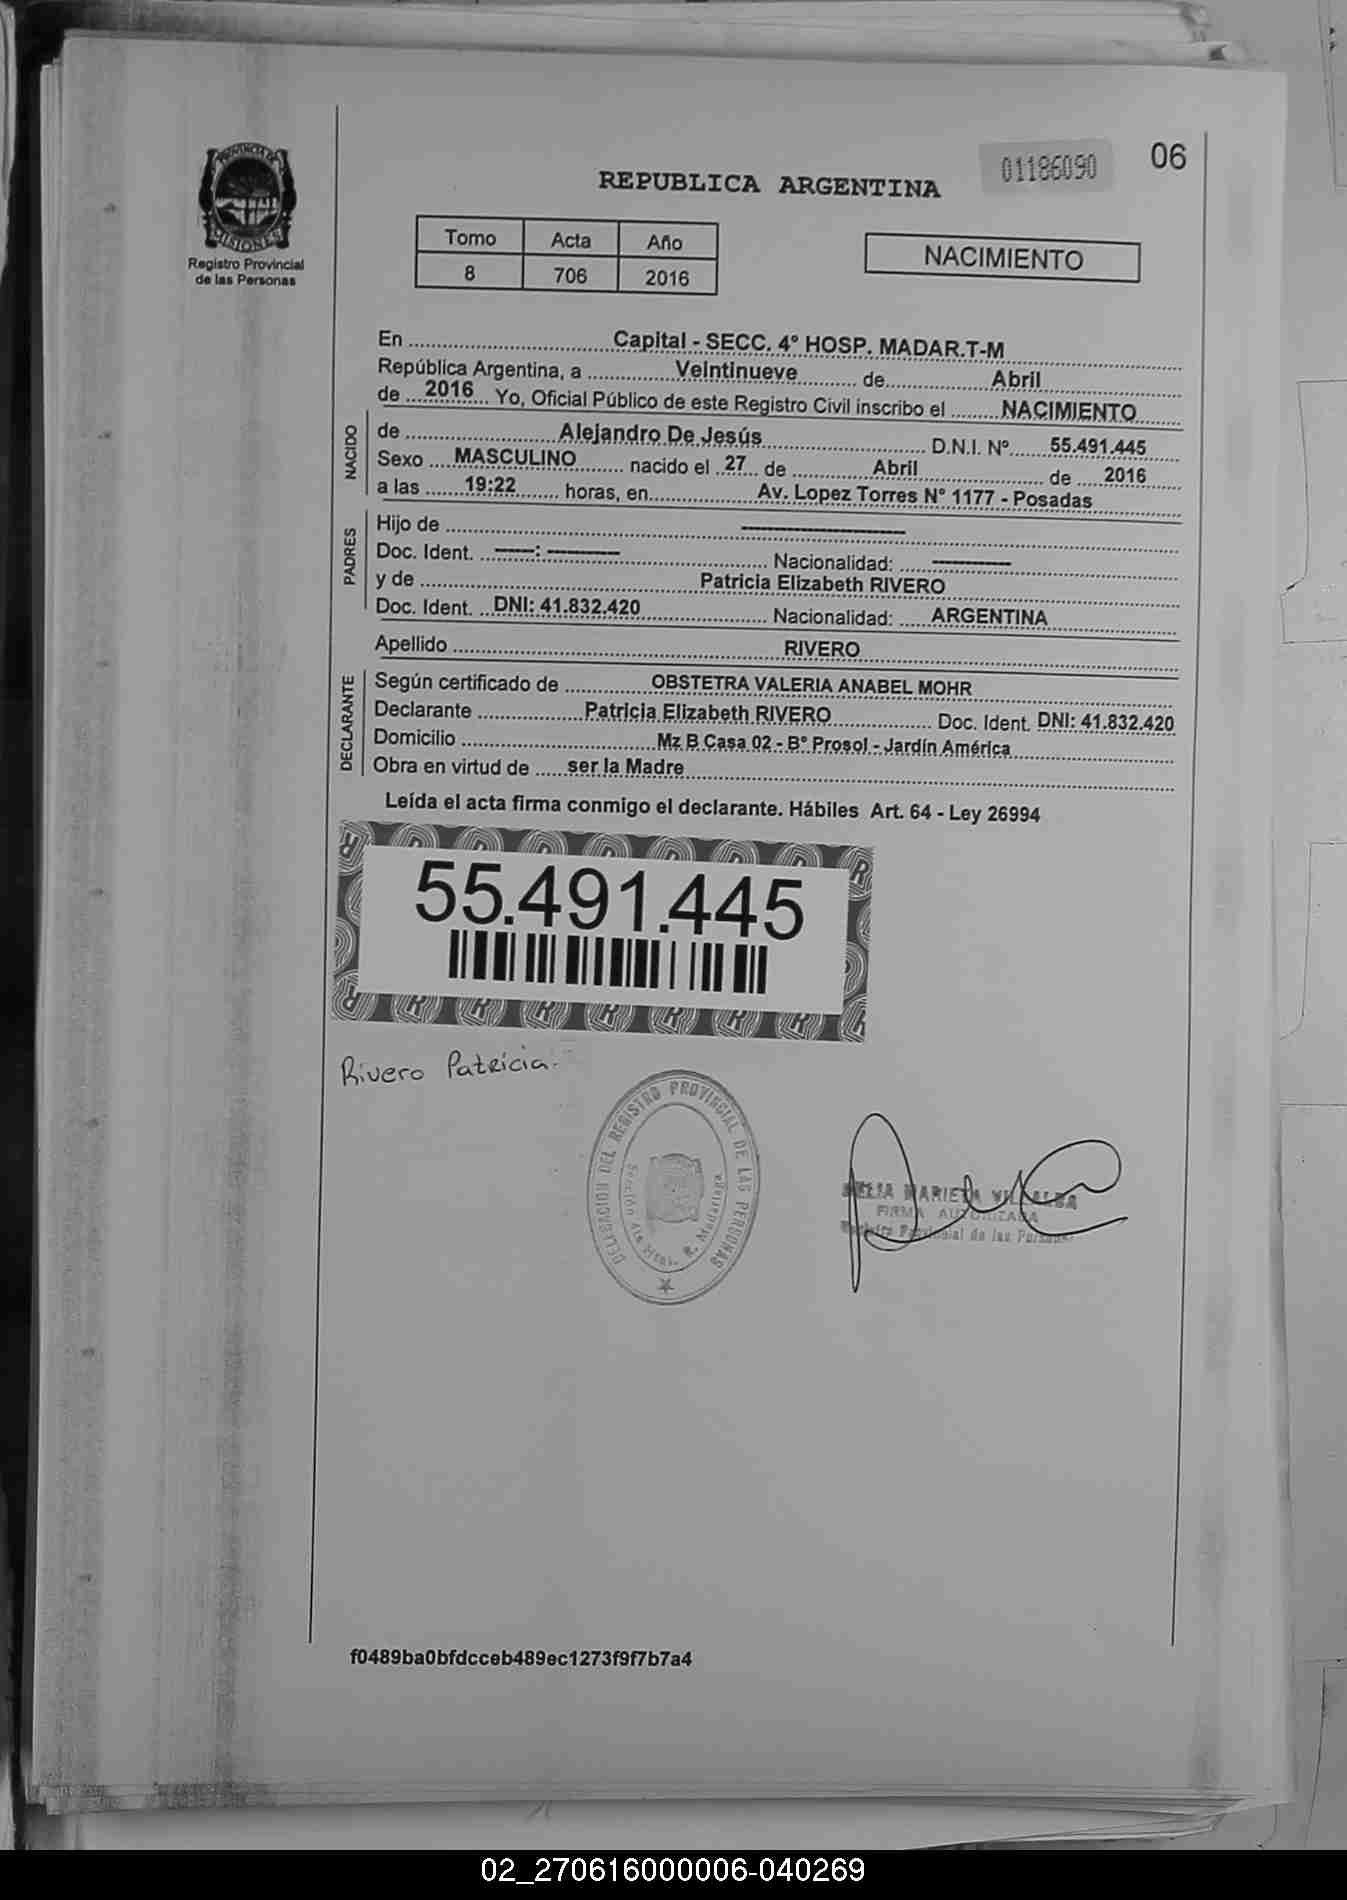 PROVINCIA DE
MISIONES
Registro Provincial
de las Personas
REPUBLICA ARGENTINA
01186090
06
Tomo Acta Año
8 706 2016
NACIMIENTO
En Capital - SECC. 4° HOSP. MADAR.T-M
República Argentina, a Veintinueve de Abril
de 2016 Yo, Oficial Público de este Registro Civil inscribo el NACIMIENTO
NACIDO
de Alejandro De Jesús D.N.I. N° 55.491.445
Sexo MASCULINO nacido el 27 de Abril de 2016
a las 19:22 horas, en Av. Lopez Torres N° 1177 - Posadas
PADRES
Hijo de ----------
Doc. Ident. ----: ------- Nacionalidad: -------
y de Patricia Elizabeth RIVERO
Doc. Ident. DNI: 41.832.420 Nacionalidad: ARGENTINA
Apellido RIVERO
DECLARANTE
Según certificado de OBSTETRA VALERIA ANABEL MOHR
Declarante Patricia Elizabeth RIVERO Doc. Ident. DNI: 41.832.420
Domicilio Mz B Casa 02 - B° Prosol - Jardín América
Obra en virtud de ser la Madre
Leída el acta firma conmigo el declarante. Hábiles Art. 64 - Ley 26994
55.491.445
Rivero Patricia.
DELEGACION DEL REGISTRO PROVINCIAL DE LAS PERSONAS
Sección 4ta Hosp. R. Madariaga
MARIETA VILLALBA
FIRMA AUTORIZADA
Registro Provincial de las Personas
f0489ba0bfdcceb489ec1273f9f7b7a4
02_270616000006-040269